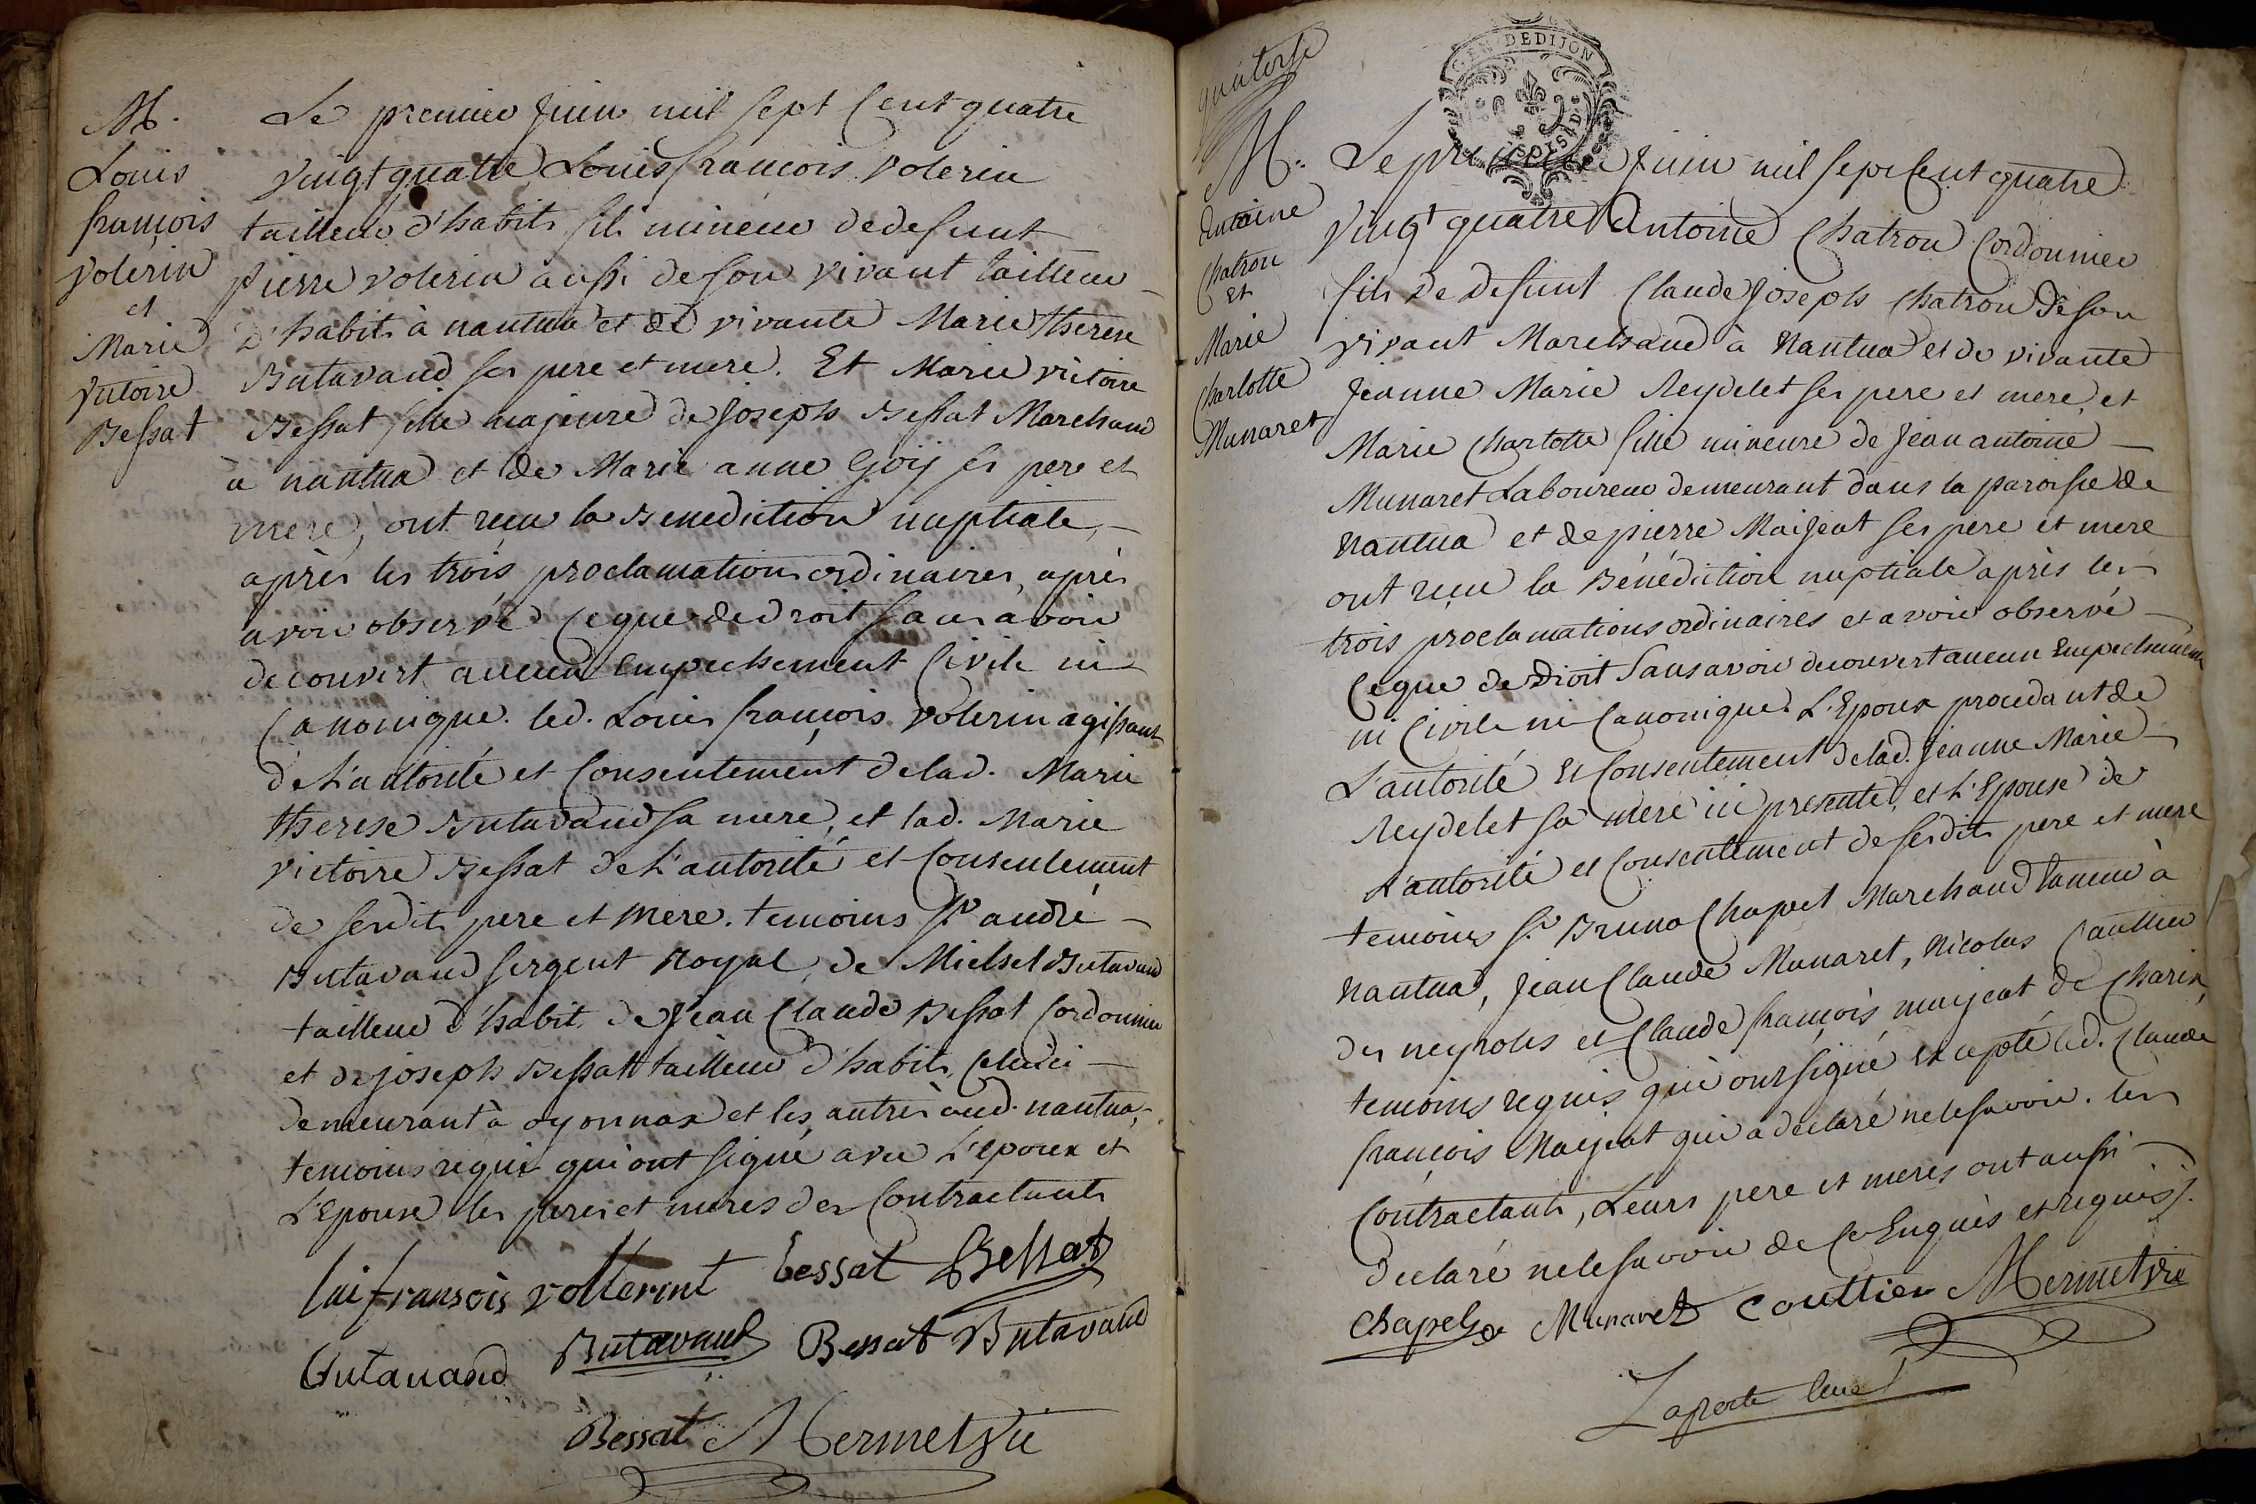 M.
Louis
françois
volerin
et
Marie
Victoire
Bessat
Le premier juin mil sept Cent quatre
vingt quatre Louis françois volerin
tailleur d'habits fils mineur de defunt
pierre volerin aussi de son vivant tailleur
d'habits à nantua et de vivante Marie therese
Butavand ses pere et mere. Et Marie victoire
Bessat fille majeure de joseph Bessat Marchand
à nantua et de Marie anne Goÿ ses pere et
mere, ont reçu la Benediction nuptiale,
après les trois proclamations ordinaires après
avoir observé ce que de droit sans avoir
decouvert aucun Empechement Civile ni
Canonique. led. Louis françois volerin agissant
de L'autorité et Consentement de lad. Marie
therese Butavand sa mere, et lad. Marie
victoire Bessat de L'autorité et Consentement
de sesdits pere et mere. temoins sr. andré
Butavand sergent Royal, de Michel Butavand
tailleur d'habit, de Jean Claude Bessat Cordonnier
et de joseph Bessat tailleur d'habits, celuici
demeurant à oyonnax et les autres aud. nantua,
temoins requis qui ont signé avec L'epoux et
L'Epouse les peres et meres des Contractants
lui fransois volterint bessat Bessat
Butavand Butavand Bessat Butavand
Bessat Mermet vic
quatorse
GEN. DE DIJON
M.
Antoine
Chatron
et
Marie
Charlotte
Munaret
Le premier Juin mil sept Cent quatre
vingt quatre Antoine Chatron Cordonnier
fils de defunt Claude Joseph Chatron de son
vivant Marchand à Nantua et de vivante
Jeanne Marie Reydelet ses pere et mere, et
Marie Charlotte fille mineure de Jean antoine
Munaret Laboureur demeurant dans la paroisse de
Nantua et de pierre Maijeat ses pere et mere
ont reçu la Bénédiction nuptiale après les
trois proclamations ordinaires et avoir observé
ce que de Droit sans avoir decouvert aucun Empechement
ni Civile ni Canonique. L'Epoux procedant de
L'autorité et Consentement de lad. Jeanne Marie
Reydelet sa mere ici presente, et L'Epouse de
L'autorité et Consentement de sesdits pere et mere
temoins sr. Bruno Chapel Marchand taneur à
Nantua, Jean Claude Munaret, Nicolas Cauttier
des neyroles et Claude françois maijeat de Charix,
temoins requis qui ont signé excepté led. Claude
françois Maijeat qui a declaré ne le savoir. les
Contractants, Leurs pere et meres ont aussi
declaré ne le savoir de ce Enquis et requis ./.
Chapel Munaret Couttier Mermet vic
Laporte Curé